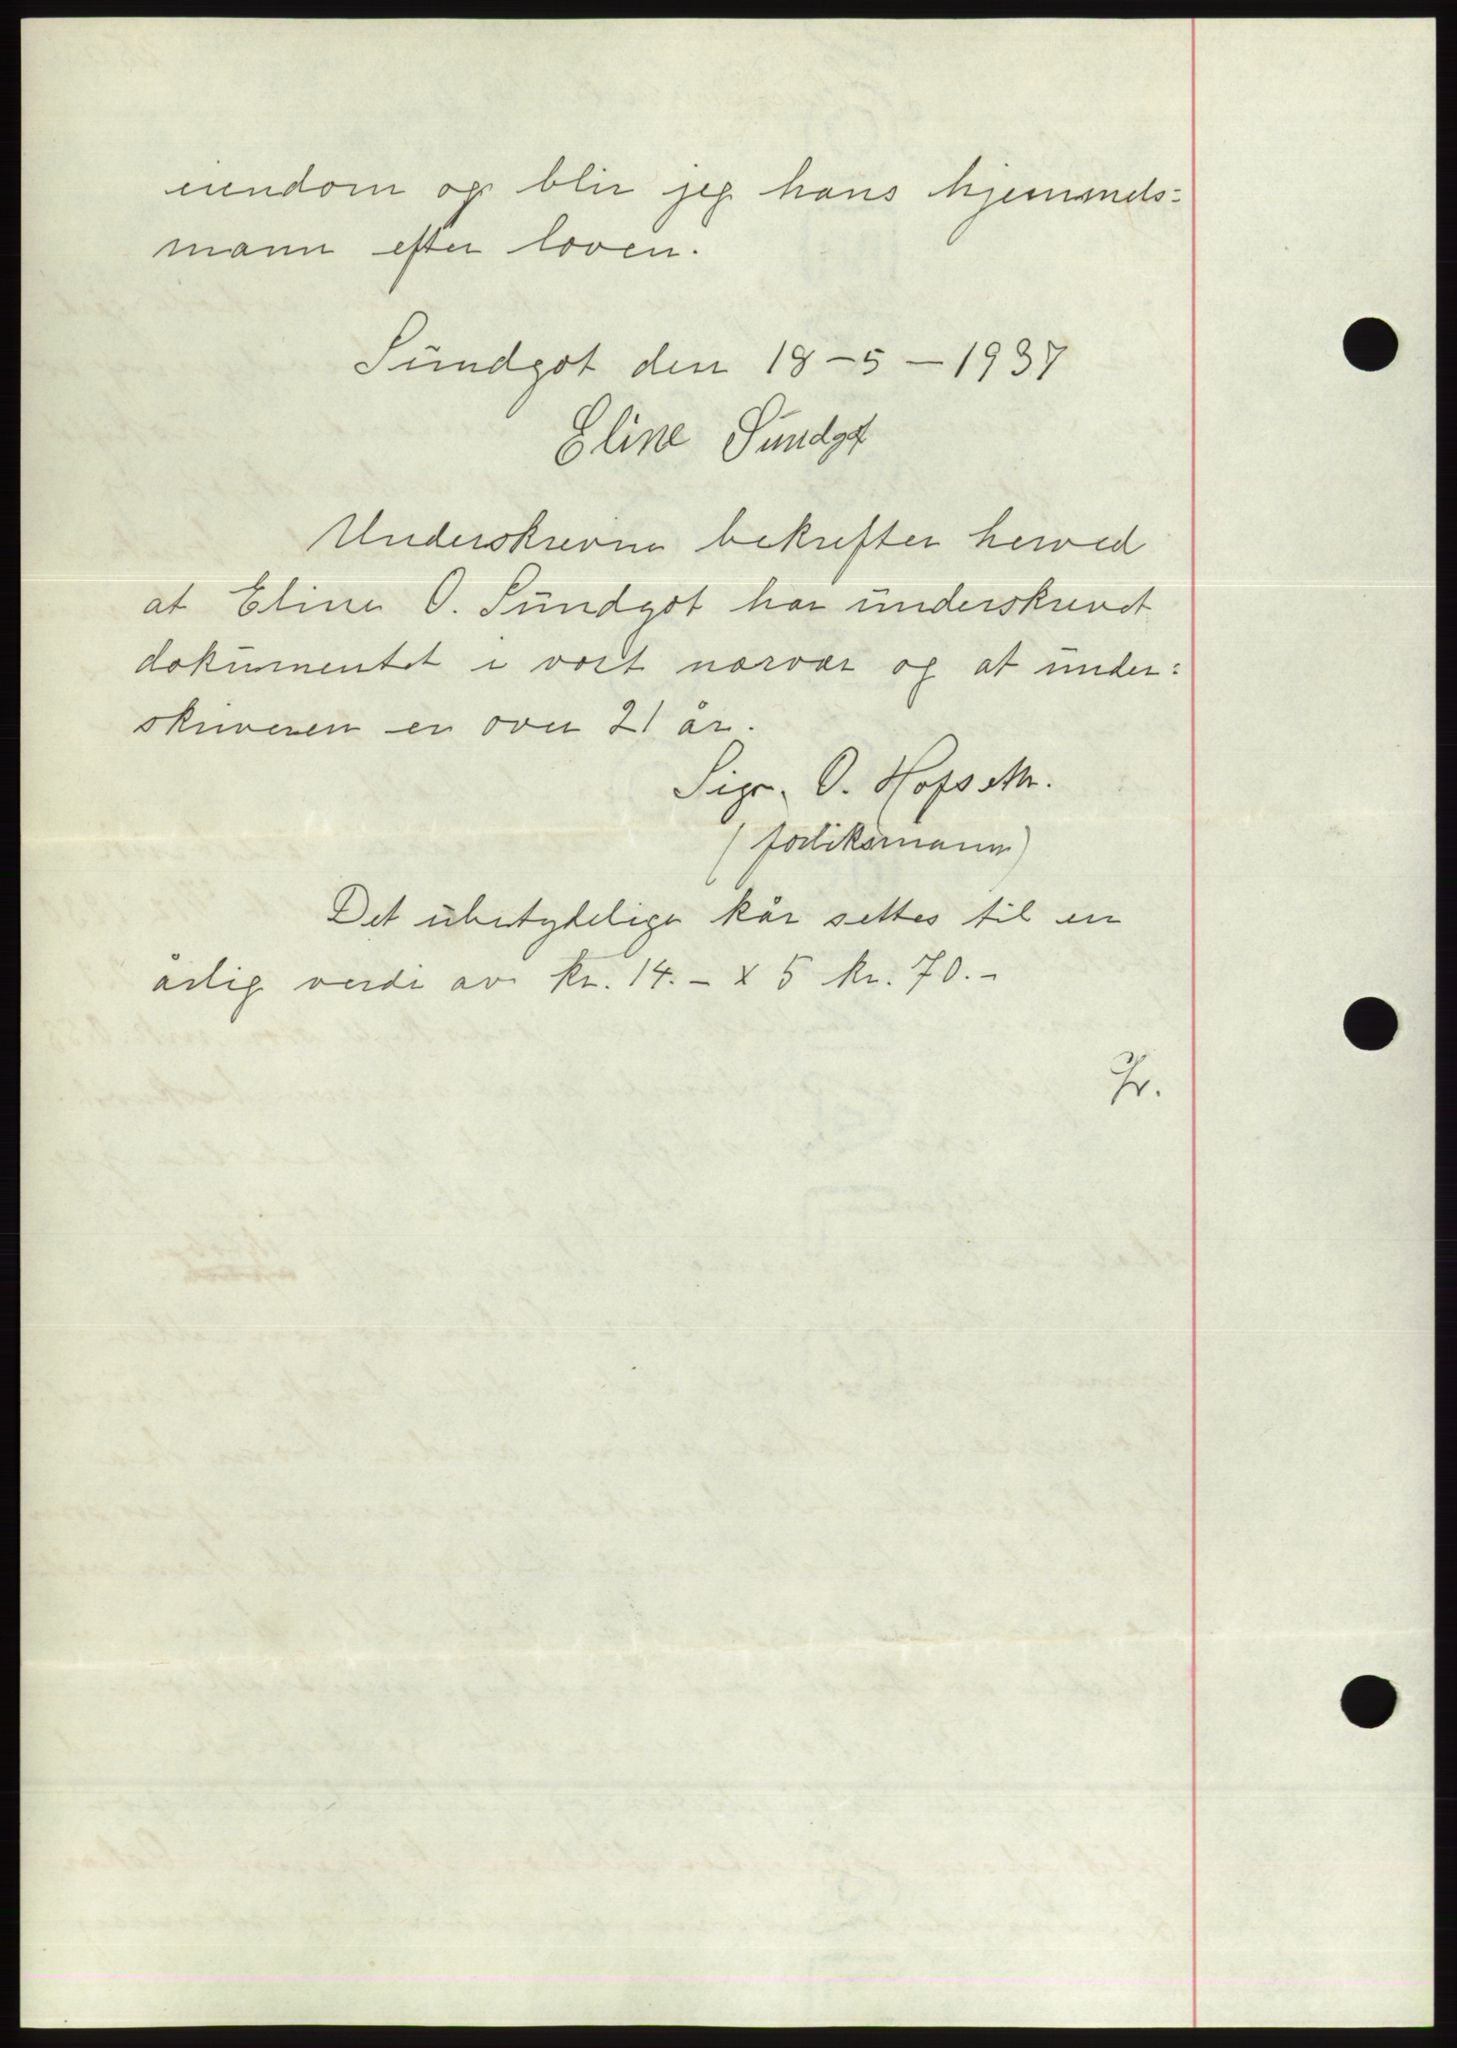 eiendom og blir jeg hans hjemmels=
mann efter loven.
Sundgot den 18-5-1937
Eline Sundgot
Underskrevne bekrefter herved
at Eline O. Sundgot har underskrevet
dokumentet i vort nærvær og at under=
skriveren er over 21 år.
Sigr. O. Hofseth.
(forliksmann)
Det ubetydelige kår settes til en
årlig verdi av kr. 14.- x 5 kr. 70.-